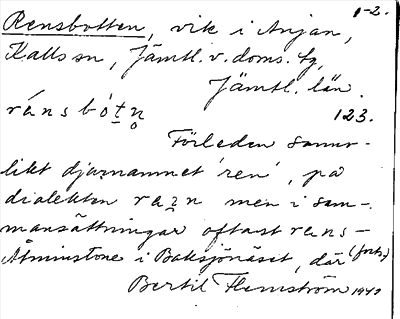 1-2.
Rensbotten, vik i Anjan,
Kalls sn, Jämtl. v. doms. tg,
Jämtl. län.
ránsbòtn̥ 123.
Förleden sanno-
likt djurnamnet 'ren', på
dialekten ran men i sam-
mansättningar oftast rans-
Åtminstone i Baksjönäset, där (forts.)
Bertil Flemström 1940